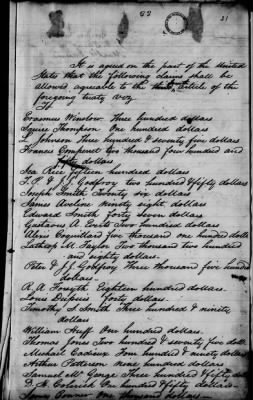 82
31
It is agreed on the part of the United
States that the following claims shall be
allowed agreeable to the third article of the
foregoing treaty viz
To
Erasmus Winslow Three hundred dollars
Squire Thompson One hundred dollars
L. Johnson Three hundred & seventy five dollars
Francis Comparet ten thousand four hundred and
fifty dollars
Ica Rice fifteen hundred dollars
T. P. & J. J. Godfroy two hundred & fifty dollars
Joseph Smith Twenty six dollars
James Aveline ninety eight dollars
Edward Smith forty seven dollars
Gustavus A. Everts Two hundred dollars
Alexis Coquillard five thousand one hundred dollars
Lathrop M. Taylor Two thousand two hundred
and eighty dollars
Peter & J. J. Godfroy Three thousand five hundred
dollars
R. A. Forsyth Eighteen hundred dollars
Louis Dupuis forty dollars
Timothy S. Smith Three hundred & ninety
dollars
William Huff One hundred dollars
Thomas Jones Two hundred & seventy five dollars
Michael Cadieux Four hundred & ninety dollars
Arthur Patterson nine hundred dollars
Samuel McGeorge Three hundred & fifty dollars
D. H. Colerick One hundred & fifty dollars
James Conner one thousand dollars